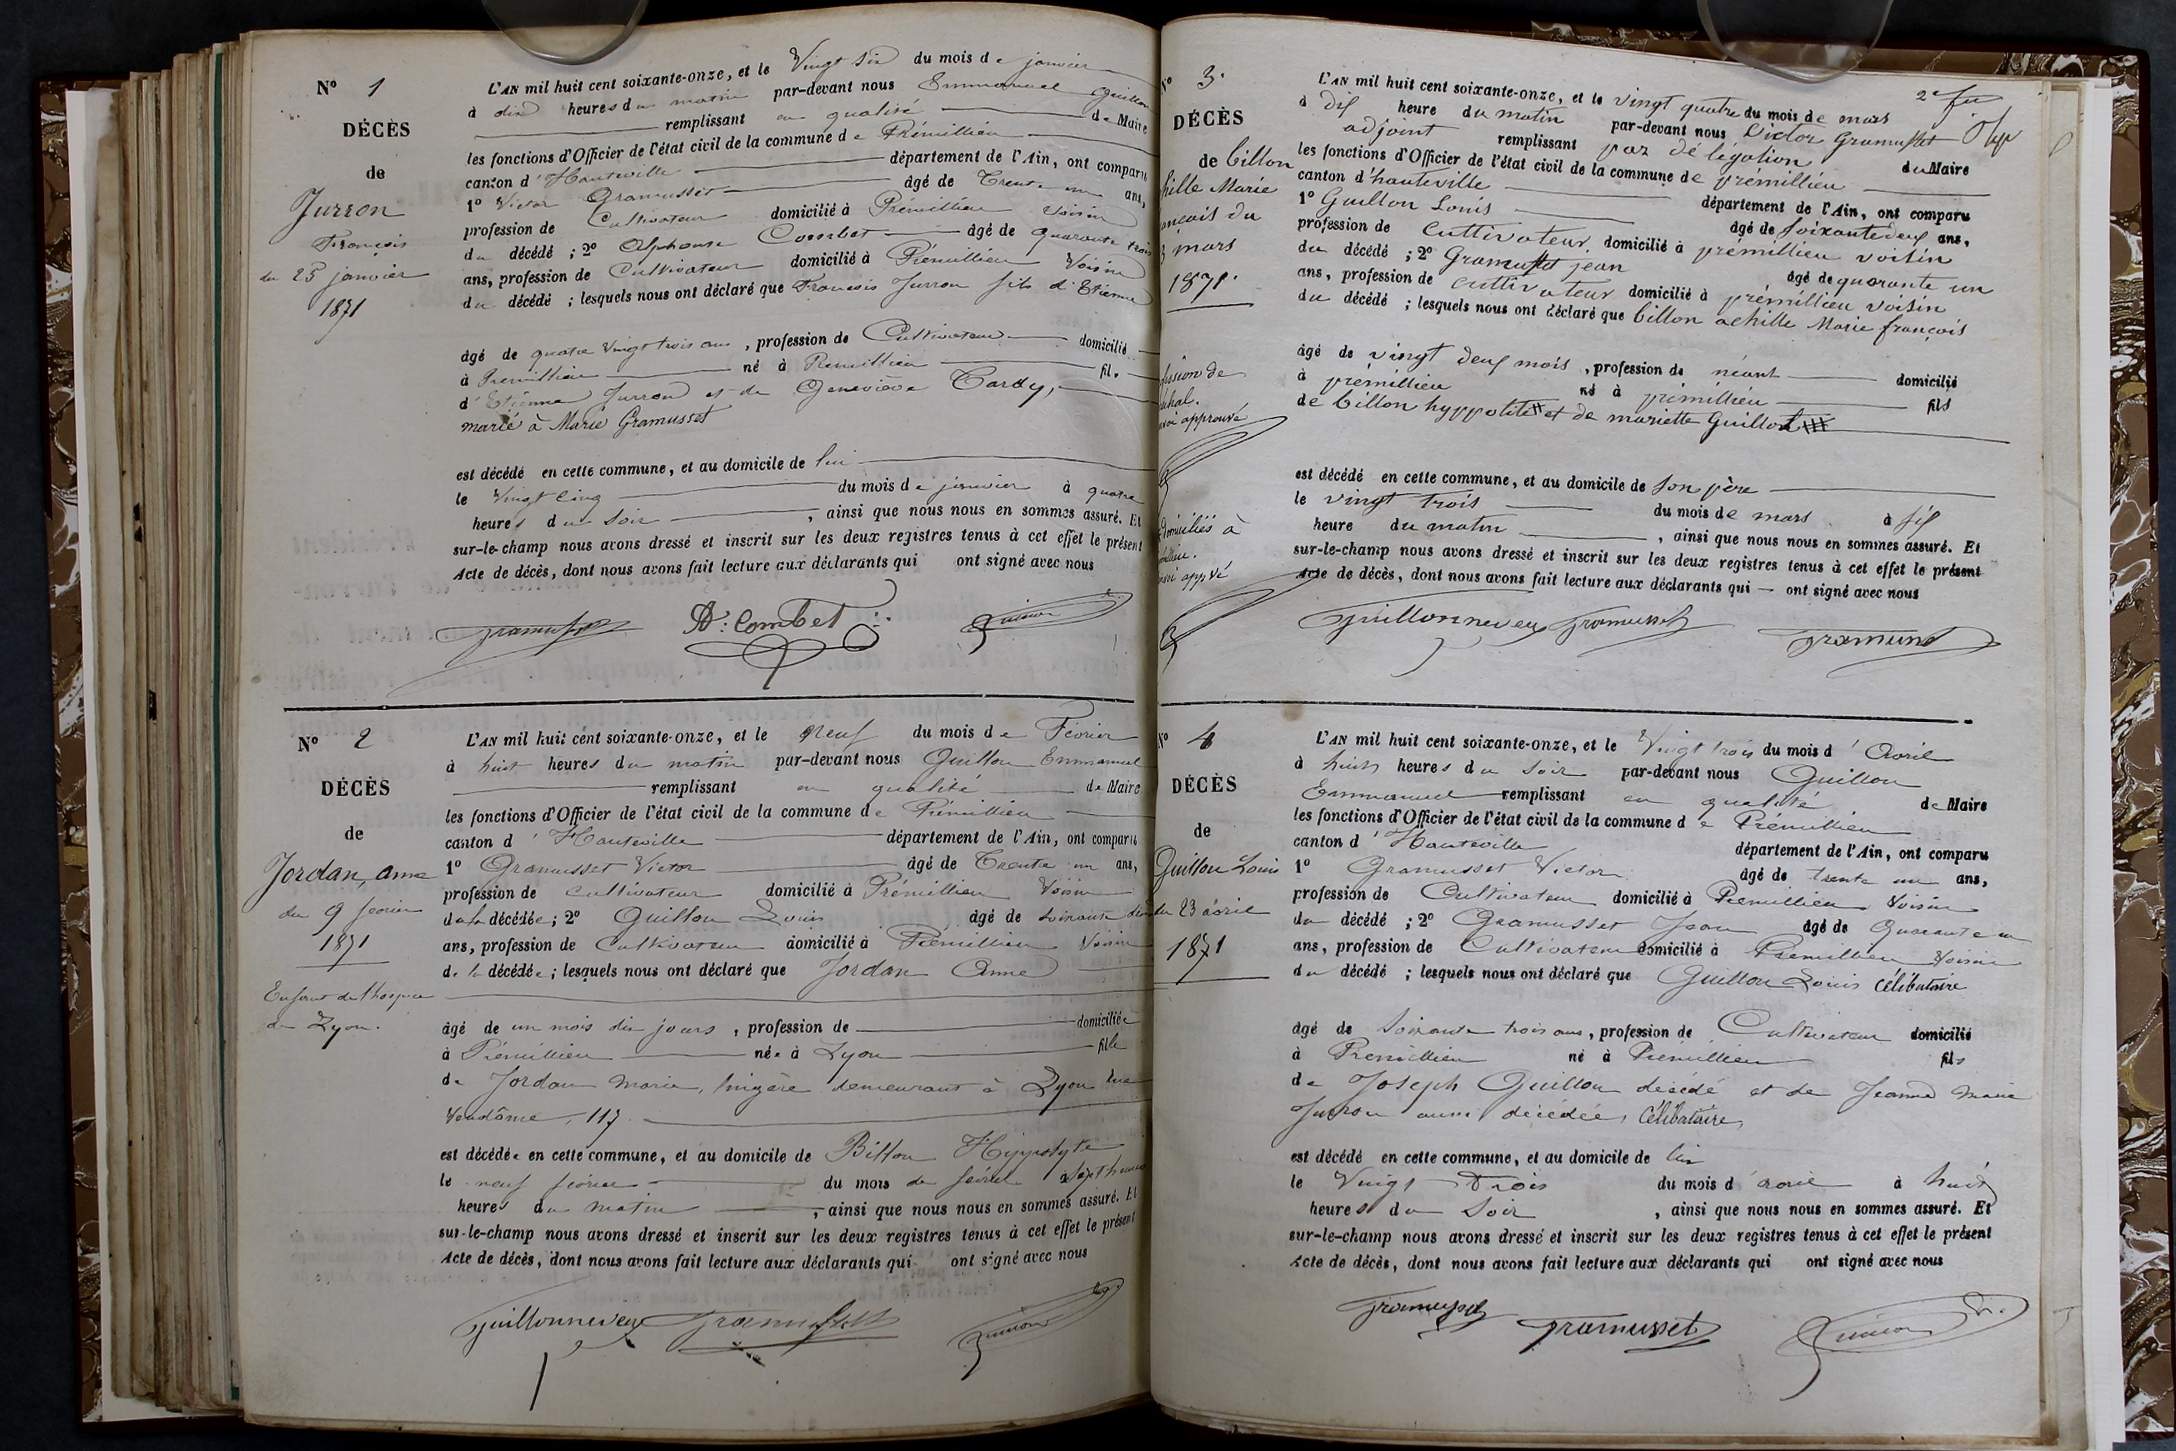 N° 1
DÉCÈS
de
Jurron
François
du 25 janvier
1871
L'AN mil huit cent soixante-onze, et le Vingt six du mois de janvier
à dix heures du matin par-devant nous Emmanuel Guillon
remplissant en qualité de Maire
les fonctions d'Officier de l'état civil de la commune de Prémillieu
canton d'Hauteville département de l'Ain, ont comparu
1° Victor Gramusset âgé de Trente un ans,
profession de Cultivateur domicilié à Prémillieu voisin
du décédé ; 2° Alphonse Combet âgé de quarante trois
ans, profession de Cultivateur domicilié à Prémillieu Voisin
du décédé ; lesquels nous ont déclaré que François Jurron fils d'Etienne
âgé de quatre Vingt trois ans, profession de Cultivateur domicilié
à Premillieu né à Premillieu fils
d'Etienne Jurron et de Geneviève Tardy,
marié à Marie Gramusset
est décédé en cette commune, et au domicile de lui
le Vingt cinq du mois de janvier à quatre
heures du soir, ainsi que nous nous en sommes assuré. Et
sur-le-champ nous avons dressé et inscrit sur les deux registres tenus à cet effet le présent
Acte de décès, dont nous avons fait lecture aux déclarants qui ont signé avec nous
Gramusset A: Combet Guillon
N° 2
DÉCÈS
de
Jordan, anne
du 9 fevrier
1871
Enfant de l'hospice
de Lyon.
L'AN mil huit cent soixante-onze, et le neuf du mois de Février
à huit heures du matin par-devant nous Guillon Emmanuel
remplissant en qualité de Maire
les fonctions d'Officier de l'état civil de la commune de Prémillieu
canton d'Hauteville département de l'Ain, ont comparu
1° Gramusset Victor âgé de Trente un ans,
profession de cultivateur domicilié à Prémillieu Voisin
de la décédée ; 2° Guillon Louis âgé de soixante deux
ans, profession de Cultivateur domicilié à Prémillieu Voisin
de la décédée ; lesquels nous ont déclaré que Jordan Anne
âgé de un mois dix jours, profession de domiciliée
à Prémillieu née à Lyon fille
de Jordan Marie, lingère demeurant à Lyon rue
Vendôme, 117
est décédée en cette commune, et au domicile de Billon Hyppolyte
le neuf fevrier du mois de février à sept heures
heures du matin, ainsi que nous nous en sommes assuré. Et
sur-le-champ nous avons dressé et inscrit sur les deux registres tenus à cet effet le présent
Acte de décès, dont nous avons fait lecture aux déclarants qui ont signé avec nous
Guillonneveu Gramusset Guillon
2e fu
N° 3.
DÉCÈS
de billon
hille Marie
ançois du
3 mars
1871.
fession de
voi approuvé
domiciliés à
millieu.
voi appvé
L'AN mil huit cent soixante-onze, et le vingt quatre du mois de mars
à dix heure du matin par-devant nous Victor Gramusset
adjoint remplissant par délégation du Maire
les fonctions d'Officier de l'état civil de la commune de prémillieu
canton d'hauteville département de l'Ain, ont comparu
1° Guillon Louis âgé de soixantedeux ans,
profession de cultivateur domicilié à prémillieu voisin
du décédé ; 2° Gramusset jean âgé de quarante un
ans, profession de cultivateur domicilié à prémillieu voisin
du décédé ; lesquels nous ont déclaré que billon achille Marie françois
âgé de vingt deux mois, profession de néant domicilié
à prémillieu né à prémillieu fils
de billon hyppolite et de mariette Guillon
est décédé en cette commune, et au domicile de son père
le vingt trois du mois de mars à six
heure du matin, ainsi que nous nous en sommes assuré. Et
sur-le-champ nous avons dressé et inscrit sur les deux registres tenus à cet effet le présent
Acte de décès, dont nous avons fait lecture aux déclarants qui — ont signé avec nous
Guillonneveu Gramusset Gramusset
N° 4
DÉCÈS
de
Guillon Louis
du 23 avril
1871
L'AN mil huit cent soixante-onze, et le Vingt trois du mois d'Avril
à huit heures du soir par-devant nous Guillon
Emmanuel remplissant en qualité de Maire
les fonctions d'Officier de l'état civil de la commune de Prémillieu
canton d'Hauteville département de l'Ain, ont comparu
1° Gramusset Victor âgé de trente un ans,
profession de Cultivateur domicilié à Prémillieu Voisin
du décédé ; 2° Gramusset Jean âgé de Quarante un
ans, profession de Cultivateur domicilié à Premillieu Voisin
du décédé ; lesquels nous ont déclaré que Guillon Louis célibataire
âgé de soixante trois ans, profession de Cultivateur domicilié
à Premillieu né à Premillieu fils
de Joseph Guillon décédé et de Jeanne Marie
Jurron aussi décédée, célibataire,
est décédé en cette commune, et au domicile de lui
le Vingt Trois du mois d'avril à huit
heures du Soir, ainsi que nous nous en sommes assuré. Et
sur-le-champ nous avons dressé et inscrit sur les deux registres tenus à cet effet le présent
Acte de décès, dont nous avons fait lecture aux déclarants qui ont signé avec nous
Gramusset Gramusset Guillon